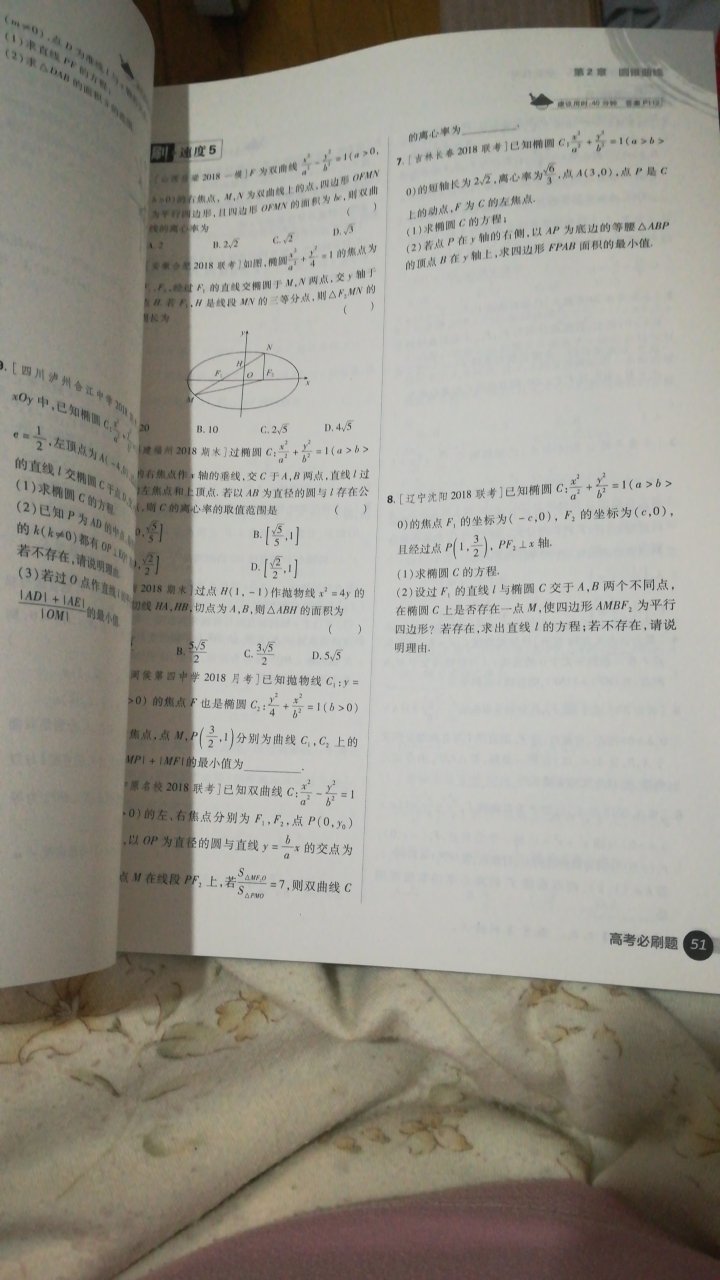 (m≠0),点D为准线l与x轴的
(1)求直线PF的方程;
(2)求△DAB的面积S的范围.
9.[四川泸州合江中学2018
xOy中,已知椭圆C:x²/a²+y²/b²
e=1/2,左顶点为A(-4,0),
的直线l交椭圆C于点D,
(1)求椭圆C的方程.
(2)已知P为AD的中点,
的k(k≠0)都有OP⊥EQ?
若不存在,请说明理由.
(3)若过O点作直线l的
(|AD|+|AE|)/|OM|的最小值.
第2章 圆锥曲线
建议用时:40分钟 答案P112
刷 速度5
2018一模]F为双曲线x²/a²-y²/b²=1(a>0,
b>0)的右焦点,M,N为双曲线上的点,四边形OFMN
为平行四边形,且四边形OFMN的面积为bc,则双曲
线的离心率为 ( )
A.2 B.2√2 C.√2 D.√3
[安徽合肥2018联考]如图,椭圆x²/a²+y²/4=1的焦点为
F₁,F₂,经过F₁的直线交椭圆于M,N两点,交y轴于
点H.若F₁,H是线段MN的三等分点,则△F₂MN的
周长为 ( )
y
N
H
F₁ O F₂ x
M
20 B.10 C.2√5 D.4√5
福建福州2018期末]过椭圆C:x²/a²+y²/b²=1(a>b>
的右焦点作x轴的垂线,交C于A,B两点,直线l过
左焦点和上顶点.若以AB为直径的圆与l存在公
,则C的离心率的取值范围是 ( )
0,√5/5] B.[√5/5,1]
√2/2] D.[√2/2,1]
2018期末]过点H(1,-1)作抛物线x²=4y的
切线HA,HB,切点为A,B,则△ABH的面积为
( )
B.5√5/2 C.3√5/2 D.5√5
闽侯第四中学2018月考]已知抛物线C₁:y=
>0)的焦点F也是椭圆C₂:y²/4+x²/b²=1(b>0)
焦点,点M,P(3/2,1)分别为曲线C₁,C₂上的
MP|+|MF|的最小值为________.
原名校2018联考]已知双曲线C:x²/a²-y²/b²=1
>0)的左、右焦点分别为F₁,F₂,点P(0,y₀)
,以OP为直径的圆与直线y=b/a x的交点为
点M在线段PF₂上,若S△MF₂O/S△PMO=7,则双曲线C
的离心率为________.
7.[吉林长春2018联考]已知椭圆C:x²/a²+y²/b²=1(a>b>
0)的短轴长为2√2,离心率为√6/3,点A(3,0),点P是C
上的动点,F为C的左焦点.
(1)求椭圆C的方程;
(2)若点P在y轴的右侧,以AP为底边的等腰△ABP
的顶点B在y轴上,求四边形FPAB面积的最小值.
8.[辽宁沈阳2018联考]已知椭圆C:x²/a²+y²/b²=1(a>b>
0)的焦点F₁的坐标为(-c,0),F₂的坐标为(c,0),
且经过点P(1,3/2),PF₂⊥x轴.
(1)求椭圆C的方程.
(2)设过F₁的直线l与椭圆C交于A,B两个不同点,
在椭圆C上是否存在一点M,使四边形AMBF₂为平行
四边形?若存在,求出直线l的方程;若不存在,请说
明理由.
高考必刷题 51